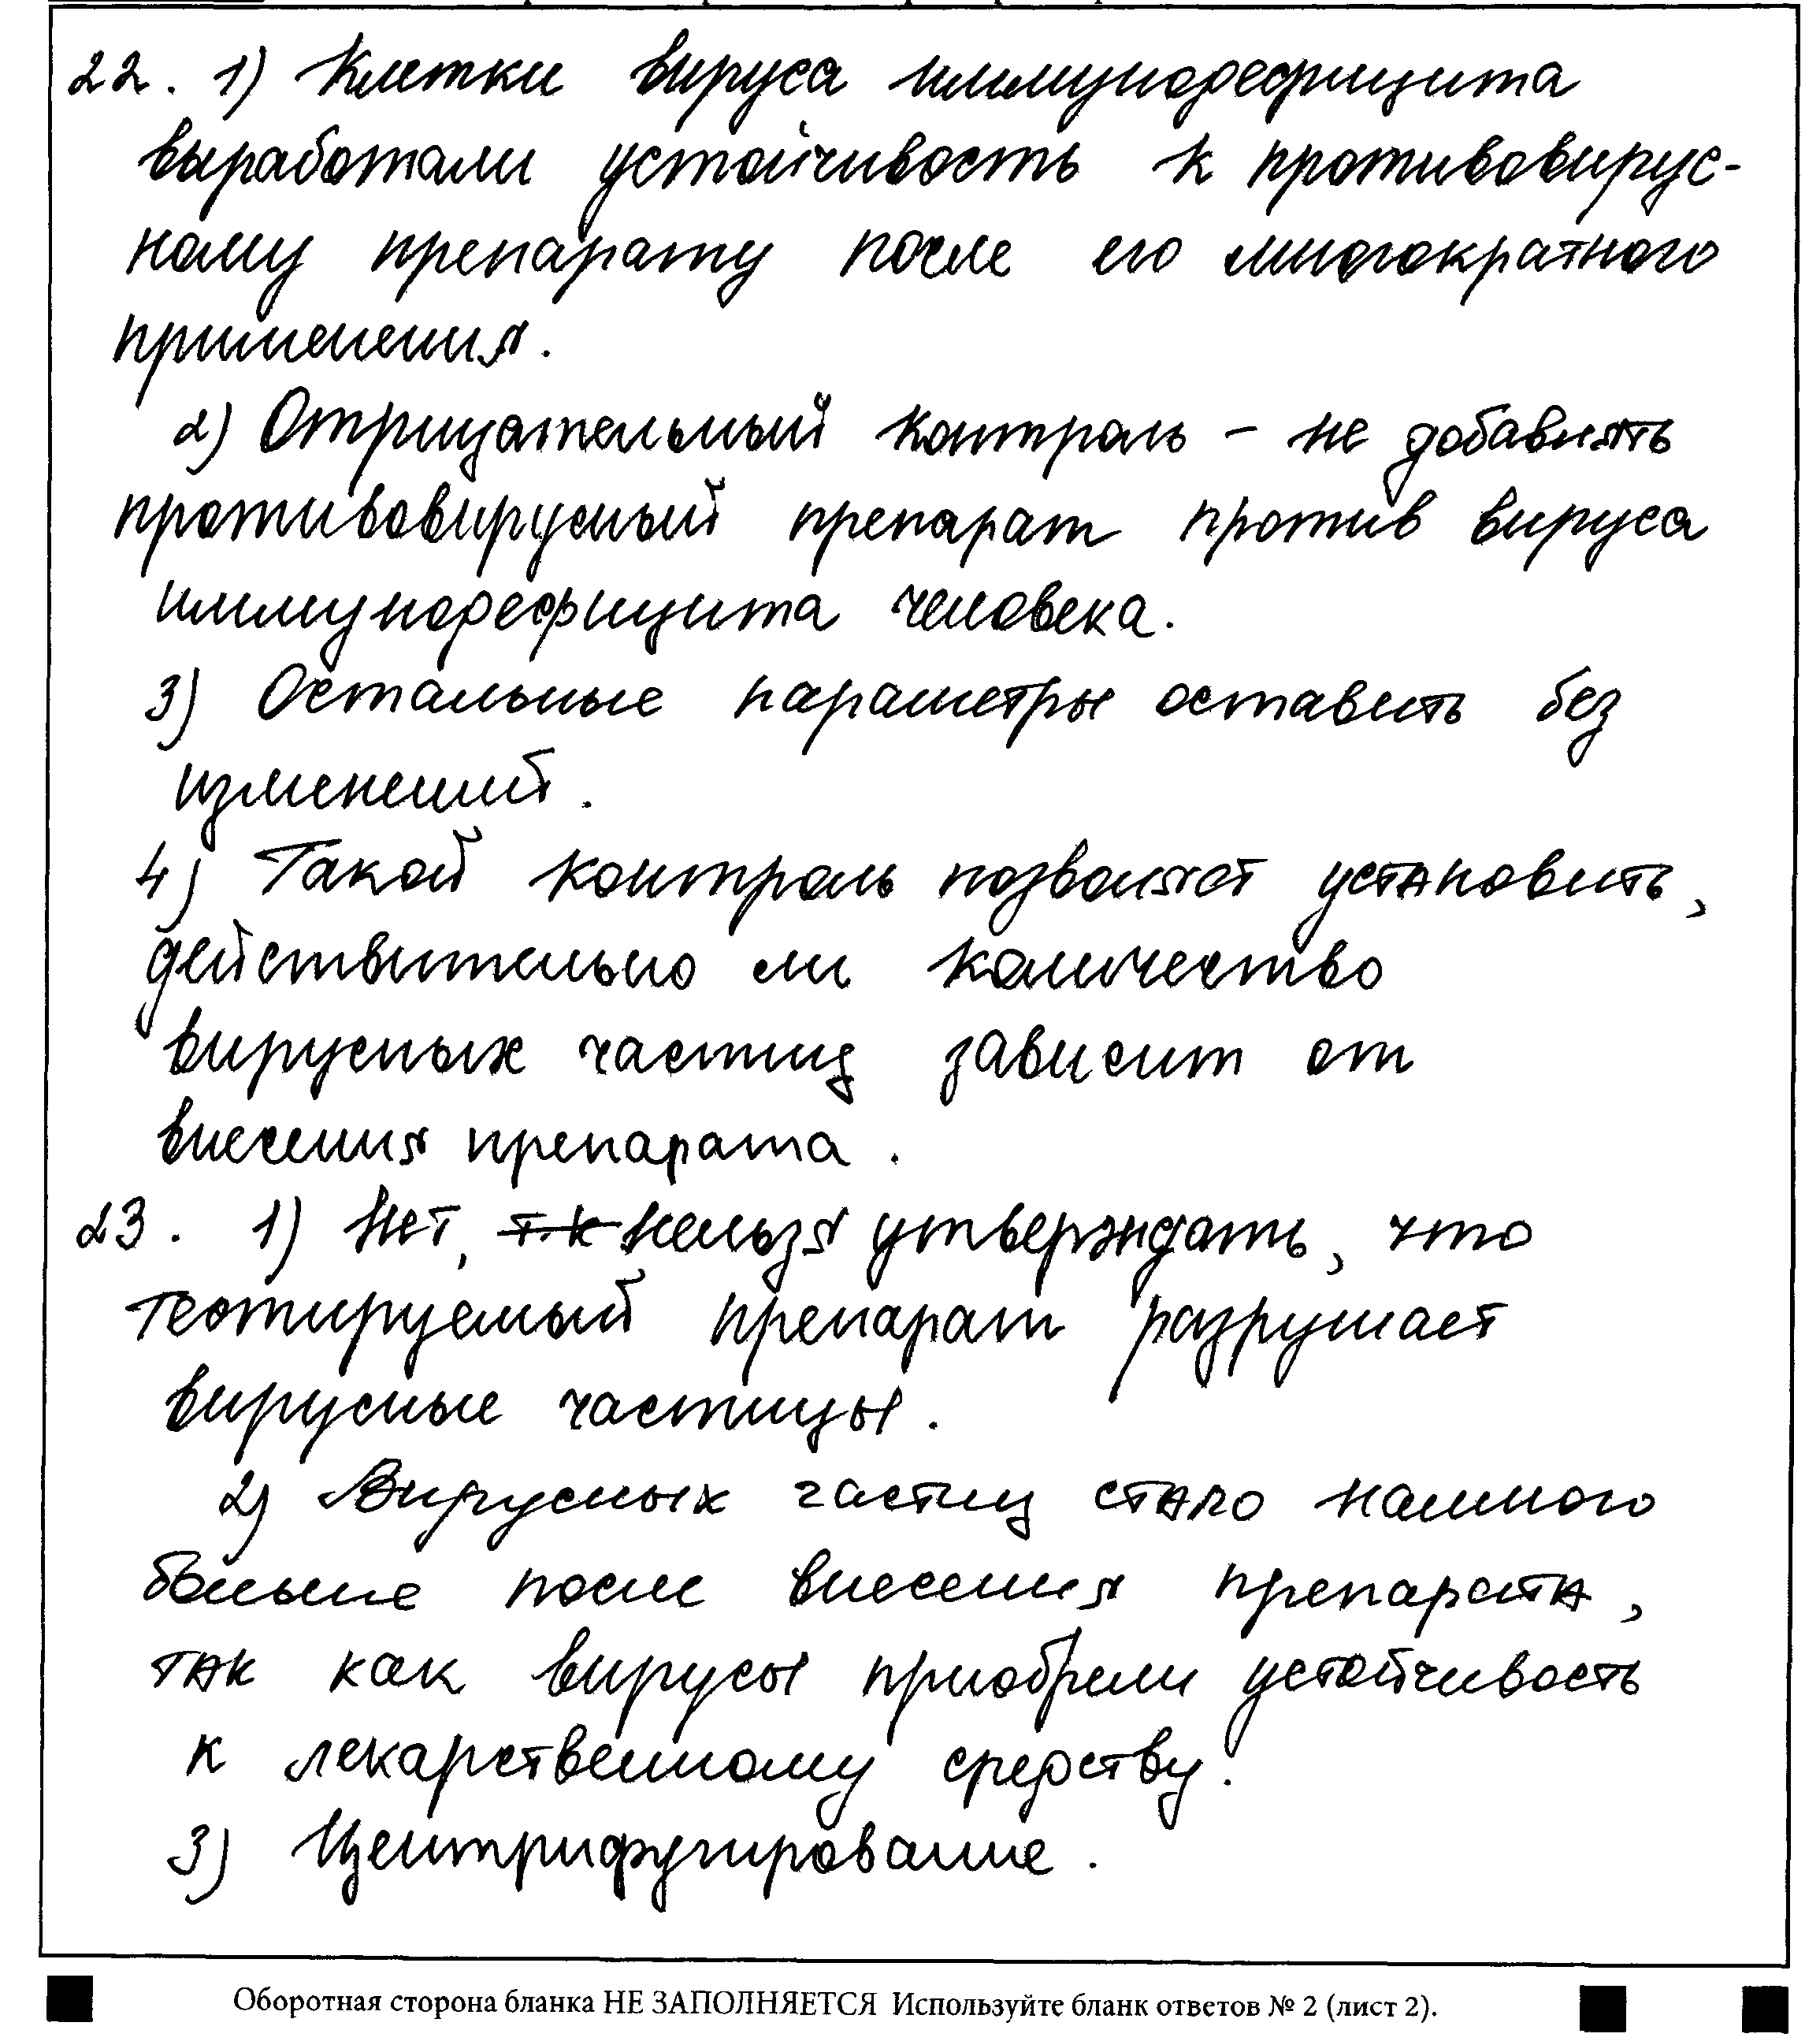 22. 1) Клетки вируса иммунодефицита
выработали устойчивость к противовирус-
ному препарату после его многократного
применения.
2) Отрицательный контроль – не добавлять
противовирусный препарат против вируса
иммунодефицита человека.
3) Остальные параметры оставить без
изменений.
4) Такой контроль позволяет установить,
действительно ли количество
вирусных частиц зависит от
внесения препарата.
23. 1) Нет, т.к нельзя утверждать, что
тестируемый препарат разрушает
вирусные частицы.
2) Вирусных частиц стало намного
больше после внесения препарата,
так как вирусы приобрели устойчивость
к лекарственному средству.
3) Центрифугирование.
Оборотная сторона бланка НЕ ЗАПОЛНЯЕТСЯ Используйте бланк ответов № 2 (лист 2).